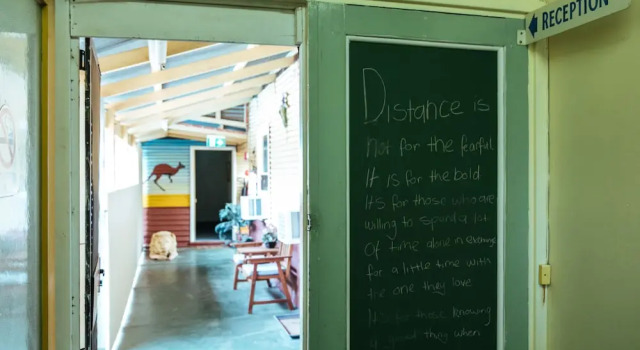 RECEPTION
Distance is
not for the fearful
It is for the bold
Its for those who are
willing to spend a lot
of time alone in
for a little time with
the one they love
Its for those knowing
good
they
when